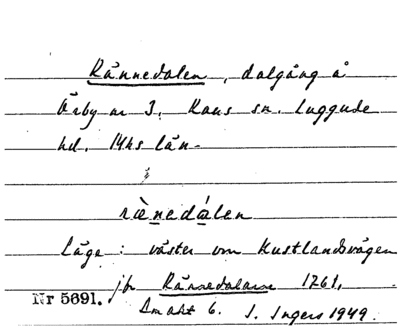 Rännedalen, dalgång å
Örby nr 3, Kaus sn. Luggude
hd. Mhs län.
ræ̀nedálen
Läge: väster om Kustlandsvägen
jfr Rännedalarne 1761,
Nr 5691.
Lm akt 6. I. Ingers 1949.